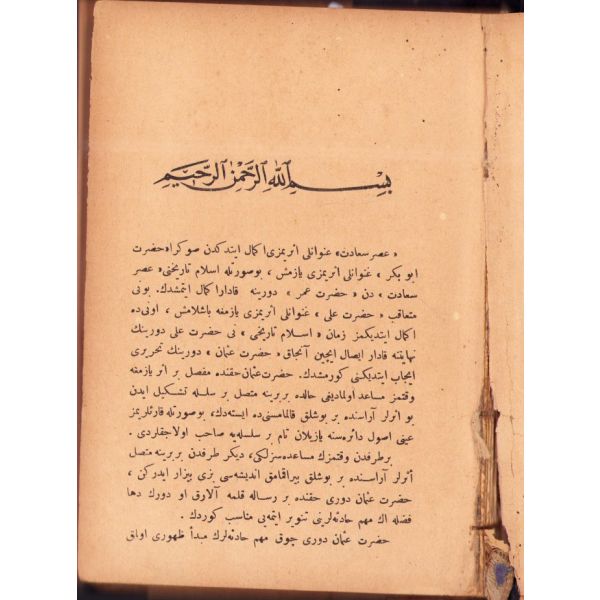 بسم الله الرحمن الرحیم
« عصر سعادت » عنوانلی اثریمزی اكمال ایتدكدن صوكرا « حضرت
ابو بكر » عنوانلی اثریمزی یازمش ، بوصورتله اسلام تاریخنی « عصر
سعادت » دن « حضرت عمر » دورینه قادار اكمال ایتمشدك. بونی
متعاقب « حضرت علی » عنوانلی اثریمزی یازمغه باشلامش ، اونی ده
اكمال ایتدیكمز زمان « اسلام تاریخی » نی حضرت علی دورینك
نهایتنه قادار ایصال ایچین آنجاق « حضرت عثمان » دورینك تحریری
ایجاب ایتدیكنی كورمشدك. حضرت عثمان حقنده مفصل بر اثر یازمغه
وقتمز مساعد اولمادیغی حالده بربرینه متصل بر سلسله تشكیل ایدن
بو اثرلر آراسنده بر بوشلق قالمامسنی ده ایسته دك، بوصورتله قارئلریمز
عینی اصول دائره سنه یازیلان تام بر سلسله یه صاحب اولاجقلردی .
بر طرفدن وقتمزك مساعده سزلكی، دیكر طرفدن بربرینه متصل
أثرلر آراسنده بر بوشلق بیراقمامق اندیشه سی بزی بیزار ایدركن ،
حضرت عثمان دوری حقنده بر رساله قلمه آلارق او دورك دها
فضله اك مهم حادثه لرینی تنویر ایتمه یی مناسب كوردك .
حضرت عثمان دوری چوق مهم حادثه لرك مبدأ ظهوری اولمق